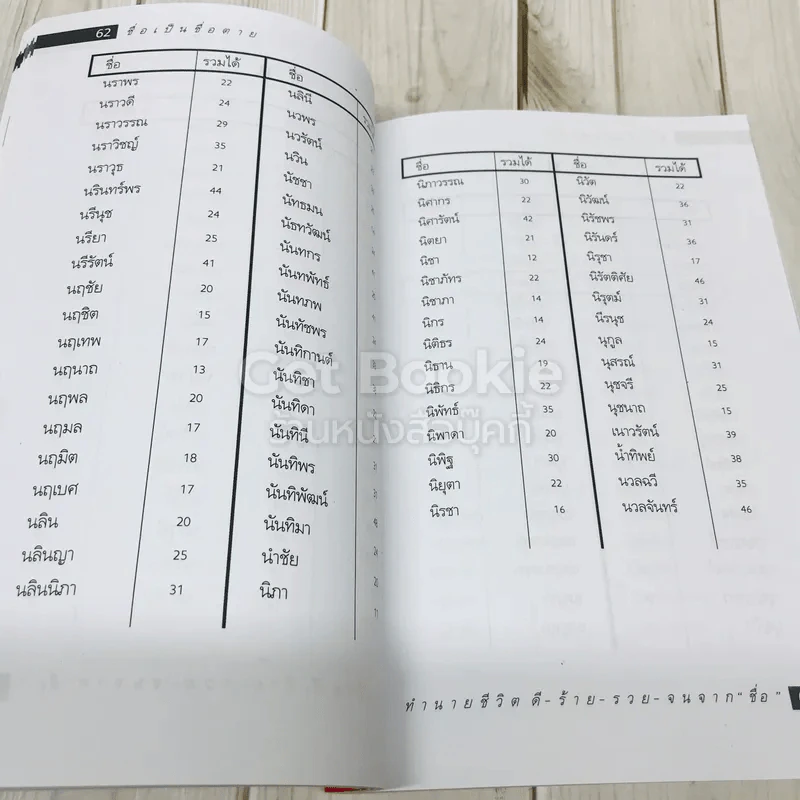 62 ชื่อเป็นชื่อตาย
ชื่อ รวมได้ ชื่อ
นราพร 22 นลินี
นราวดี 24 นวพร
นราวรรณ 29 นวรัตน์
นราวิชญ์ 35 นวิน
นราวุธ 21 นัชชา
นรินทร์พร 44 นัทธมน
นรีนุช 24 นัธทวัฒน์
นรียา 25 นันทกร
นรีรัตน์ 41 นันทพัทธ์
นฤชัย 20 นันทภพ
นฤชิต 15 นันทัชพร
นฤเทพ 17 นันทิกานต์
นฤนาถ 13 นันทิชา
นฤพล 20 นันทิดา
นฤมล 17 นันทินี
นฤมิต 18 นันทิพร
นฤเบศ 17 นันทิพัฒน์
นลิน 20 นันทิมา
นลินญา 25 นำชัย
นลินนิภา 31 นิภา
ชื่อ รวมได้ ชื่อ รวมได้
นิภาวรรณ 30 นิวัต 22
นิศากร 22 นิวัฒน์ 36
นิศารัตน์ 42 นิรัชพร 31
นิตยา 21 นิรันดร์ 36
นิชา 12 นิรุชา 17
นิชาภัทร 22 นิรัตติศัย 46
นิชาภา 14 นิรุตม์ 31
นิกร 14 นีรนุช 24
นิติธร 24 นุกูล 15
นิธาน 19 นุสรณ์ 31
นิธิกร 22 นุชจรี 25
นิพัทธ์ 35 นุชนาถ 15
นิพาดา 20 เนาวรัตน์ 39
นิพิฐ 30 น้ำทิพย์ 38
นิยุตา 22 นวลฉวี 35
นิรชา 16 นวลจันทร์ 46
Get Bookie
ร้านหนังสือบุ๊คกี้
ทำนายชีวิต ดี-ร้าย-รวย-จนจาก"ชื่อ"